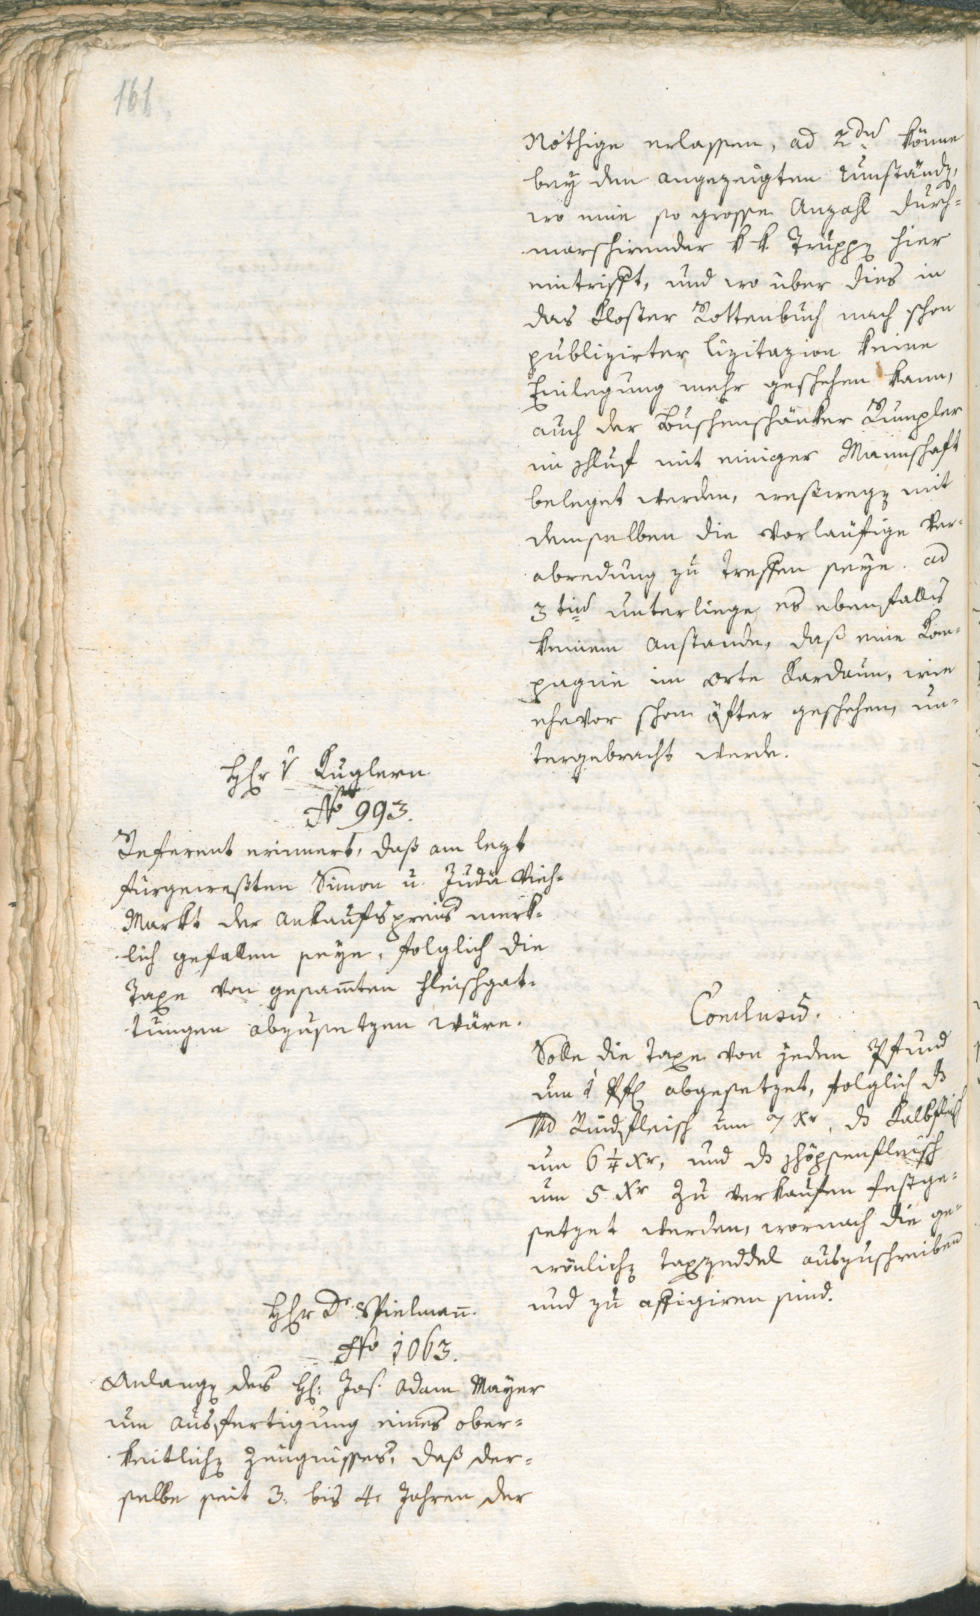 161
Nöthige erlassen, ad 2dum könne
bey den angezeigten Umständen,
wo eine so grosse Anzahl durch-
marschirender k k Truppen hier
eintrifft, und wo über dies in
das Kloster Rottenbuch nach schon
publizirter Lizitazion keine
Einlegung mehr geschehen kann,
auch der Buschenschänker Rumpler
im mit einiger Mannschaft
beleget werden, weßwegen mit
demselben die vorläufige Ver-
abredung zu treffen seye. ad
3tium unterliege es ebenfalls
keinem Anstande, daß eine Kom-
pagnie im Orte Kardaun, wie
ehevor schon öfter geschehen, un-
tergebracht werde.
Hr v Kuglern
No 993.
Referent erinnert, daß am lezt
fürgewesten Simon u. Judä Vieh-
Markt der Ankaufspreis merk-
lich gefallen seye, folglich die
Taxe von gesamten Fleischgat-
tungen abzusetzen wäre.
Conclusum.
Solle die Taxe von jedem Pfund
um 1 Pf abgesetzet, folglich das
Rindfleisch um 7 Xr, das Kalbfleisch
um 6 1/4 Xr, und das Schöpsenfleisch
um 5 Xr zu verkaufen festge-
setzet werden, wornach die ge-
wönlichen Taxzeddel auszuschreiben
und zu affigiren sind.
Hr Dr Spielmann.
No 1063.
Anlangen des H: Jos. Adam Mayer
um Ausfertigung eines ober-
keitlichen Zeugnisses, daß der-
selbe seit 3. bis 4. Jahren der